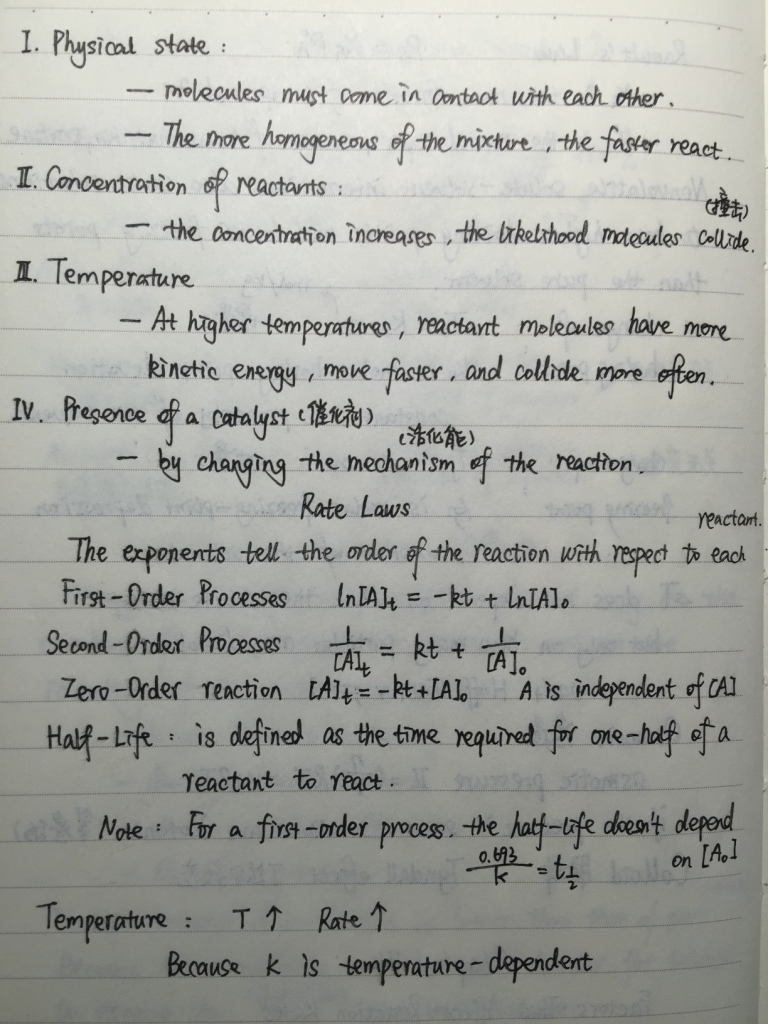 I. Physical state :
— molecules must come in contact with each other.
— The more homogeneous of the mixture, the faster react.
II. Concentration of reactants :
(撞击)
— the concentration increases, the likelihood molecules collide.
III. Temperature
— At higher temperatures, reactant molecules have more
kinetic energy, move faster, and collide more often.
IV. Presence of a catalyst (催化剂)
(活化能)
— by changing the mechanism of the reaction.
Rate Laws
reactant.
The exponents tell the order of the reaction with respect to each
First-Order Processes ln[A]t = -kt + ln[A]₀
Second-Order Processes 1/[A]t = kt + 1/[A]₀
Zero-Order reaction [A]t = -kt+[A]₀ A is independent of [A]
Half-Life : is defined as the time required for one-half of a
reactant to react.
Note : For a first-order process. the half-life doesn't depend
on [A₀]
0.693/k = t½
Temperature : T ↑ Rate ↑
Because k is temperature-dependent